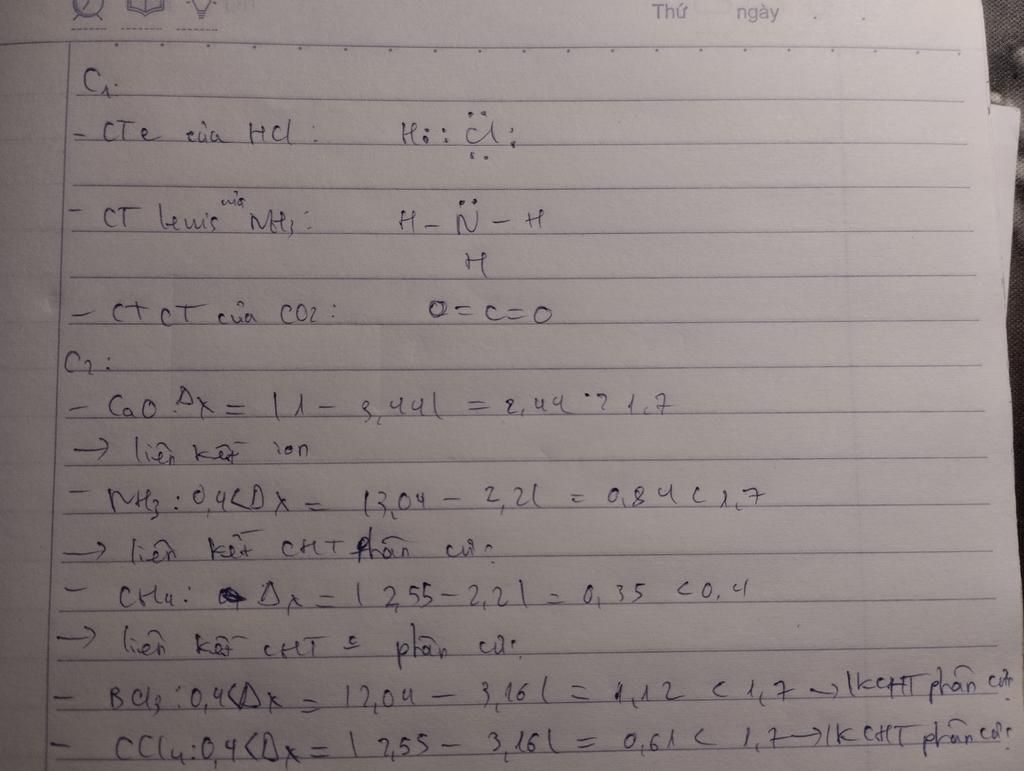 Thứ ngày
C1:
- CTe của HCl: H : Cl :
- CT lewis của NH3: H - N - H
H
- CTCT của CO2: O = C = O
C2:
- CaO: Δχ = |1 - 3,44| = 2,44 > 1,7
→ liên kết ion
- NH3: 0,4 < Δχ = |3,04 - 2,2| = 0,84 < 1,7
→ liên kết CHT phân cực
- CH4: Δχ = |2,55 - 2,2| = 0,35 < 0,4
→ liên kết CHT phân cực
- BCl3: 0,4 < Δχ = |2,04 - 3,16| = 1,12 < 1,7 → lk CHT phân cực
- CCl4: 0,4 < Δχ = |2,55 - 3,16| = 0,61 < 1,7 → lk CHT phân cực